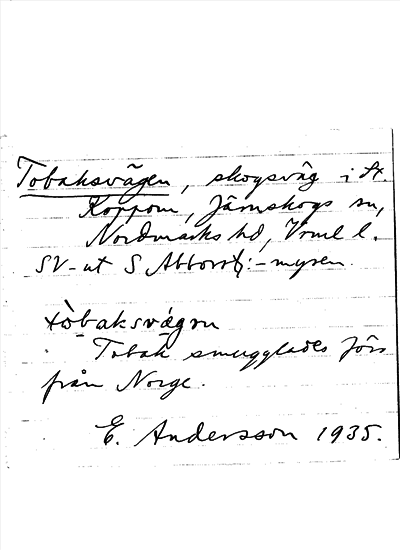 Tobaksvägen, skogsväg i St.
Koppom, Järnskogs sn,
Nordmarks hd, Vrml l.
SV-ut S Abborrtj:-myren.
tòbaksvä́gən
Tobak smugglades förr
från Norge.
E. Andersson 1935.